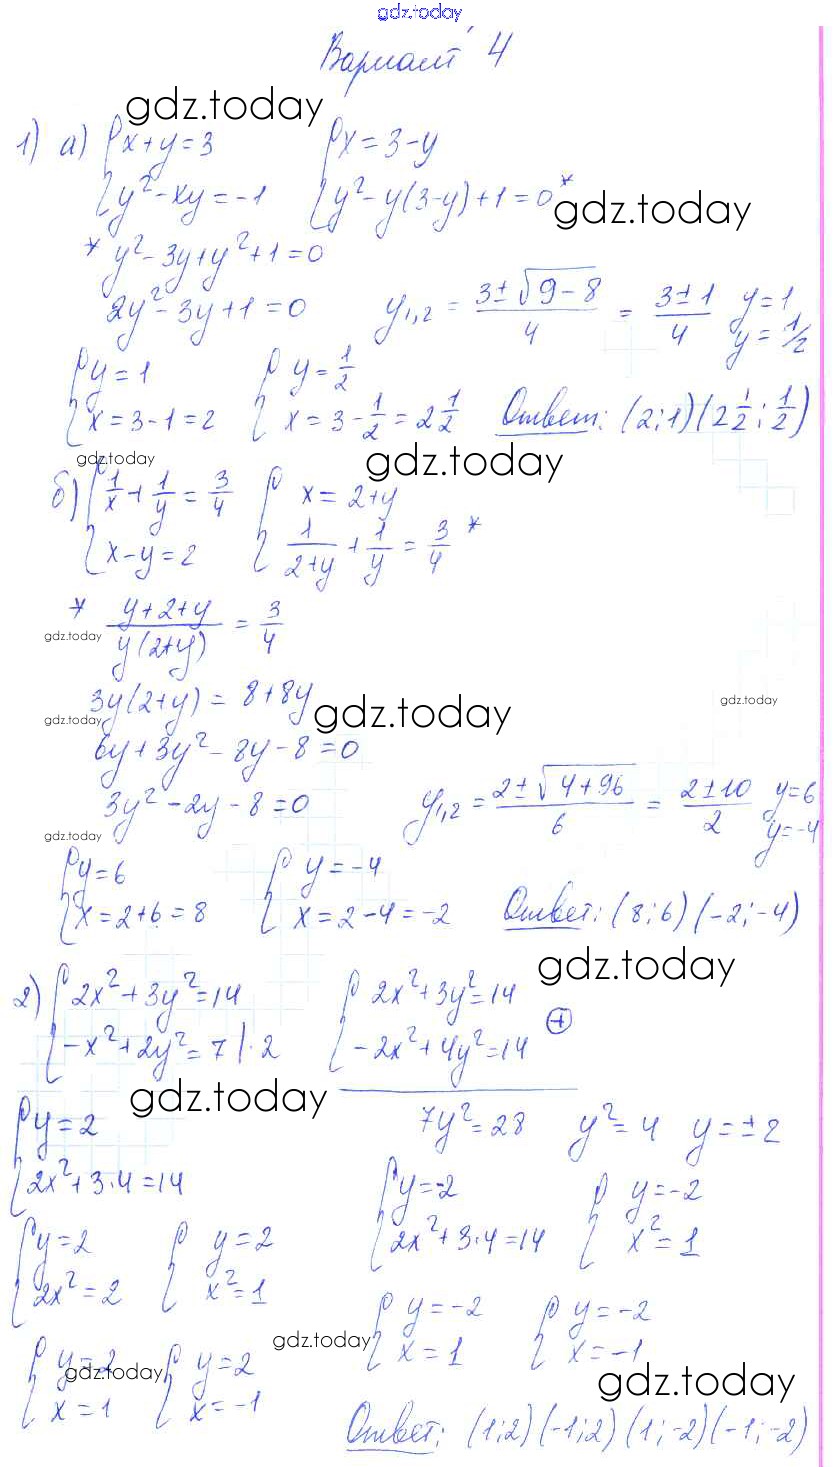 gdz.today
Вариант 4
gdz.today
1) а) { x+y=3   { x=3-y
{ y²-xy=-1   { y²-y(3-y)+1=0*
gdz.today
* y²-3y+y²+1=0
2y²-3y+1=0   y₁,₂ = (3±√(9-8))/4 = (3±1)/4   y=1
y=1/2
{ y=1   { y=1/2
{ x=3-1=2   { x=3-1/2=2 1/2   Ответ: (2;1)(2 1/2; 1/2)
gdz.today   gdz.today
б) { 1/x+1/y=3/4   { x=2+y
{ x-y=2   { 1/(2+y)+1/y=3/4 *
* (y+2+y)/(y(2+y)) = 3/4
gdz.today
3y(2+y)=8+8y
gdz.today
gdz.today   gdz.today
6y+3y²-8y-8=0
3y²-2y-8=0   y₁,₂ = (2±√(4+96))/6 = (2±10)/2   y=6
y=-4
gdz.today
{ y=6   { y=-4
{ x=2+6=8   { x=2-4=-2   Ответ: (8;6)(-2;-4)
gdz.today
2) { 2x²+3y²=14   { 2x²+3y²=14
{ -x²+2y²=7 |·2   { -2x²+4y²=14   ⊕
gdz.today
{ y=2   7y²=28   y²=4   y=±2
{ 2x²+3·4=14
{ y=-2   { y=-2
{ 2x²+3·4=14   { x²=1
{ y=2   { y=2
{ 2x²=2   { x²=1
{ y=-2   { y=-2
{ x=1   { x=-1
gdz.today
{ y=2   { y=2
gdz.today   gdz.today
{ x=1   { x=-1
Ответ: (1;2)(-1;2)(1;-2)(-1;-2)